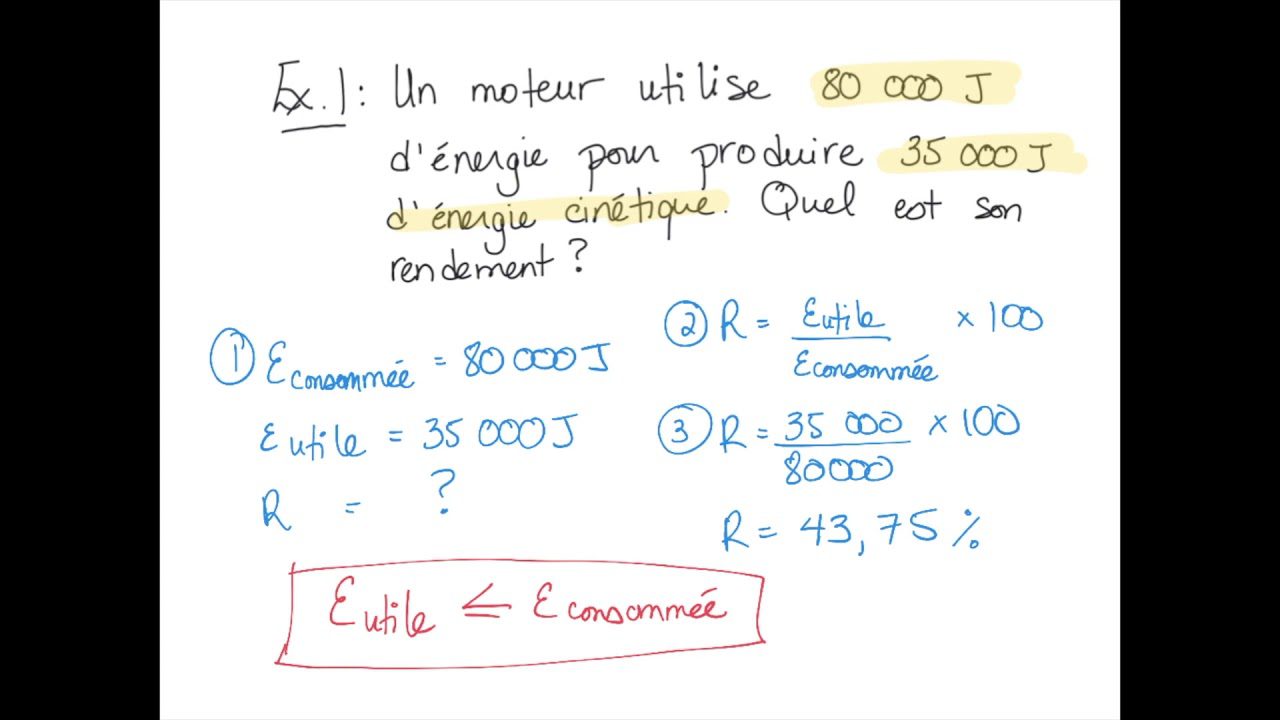 Ex.1: Un moteur utilise 80 000 J
d'énergie pour produire 35 000 J
d'énergie cinétique. Quel est son
rendement ?
① Econsommée = 80 000 J
E utile = 35 000 J
R = ?
② R = Eutile / Econsommée × 100
③ R = 35 000 / 80000 × 100
R = 43,75 %
E utile ≤ E consommée